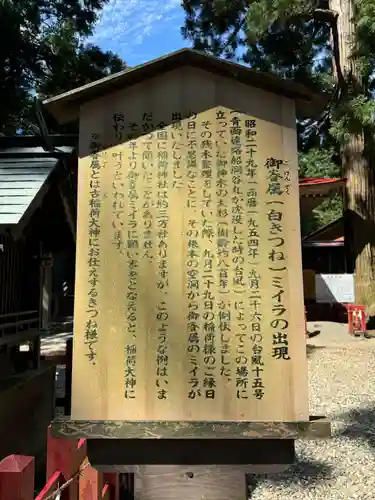 御眷属(白きつね)ミイラの出現
けんぞく
昭和二十九年(西暦一九五四年)九月二十六日の台風十五号
(青函連絡船洞爺丸が沈没した時の台風)でこの場所に
立っていた御神木の大杉(樹齢約八百年)が倒伏しました。
その残木整理をしていた際、九月二十九日の稲荷様のご縁日
の日に不思議なことに、その根本の空洞から御眷属のミイラが
出現いたしました
全国に稲荷神社は約三万社ありますが、このような例はいま
だかって聞いたことがありません。
毎年九月より御眷属ミイラに願い木をとなえると、稲荷大神に
叶うといわれています。
伝わり
※御眷属とは古稲荷大神にお仕えするきつね様です。